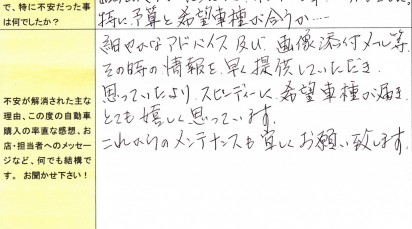 で、特に不安だった事
は何でしたか？
特に予算と希望車種が合うか……
不安が解消された主な
理由、この度の自動車
購入の率直な感想、お
店・担当者へのメッセー
ジなど、何でも結構で
す。 お聞かせ下さい！
細やかなアドバイス及び画像添付メール等、
その時の情報を早く提供していただき、
思っていたよりスピーディーに希望車種が届き
とても嬉しく思っています。
これからのメンテナンスも宜しくお願い致します。